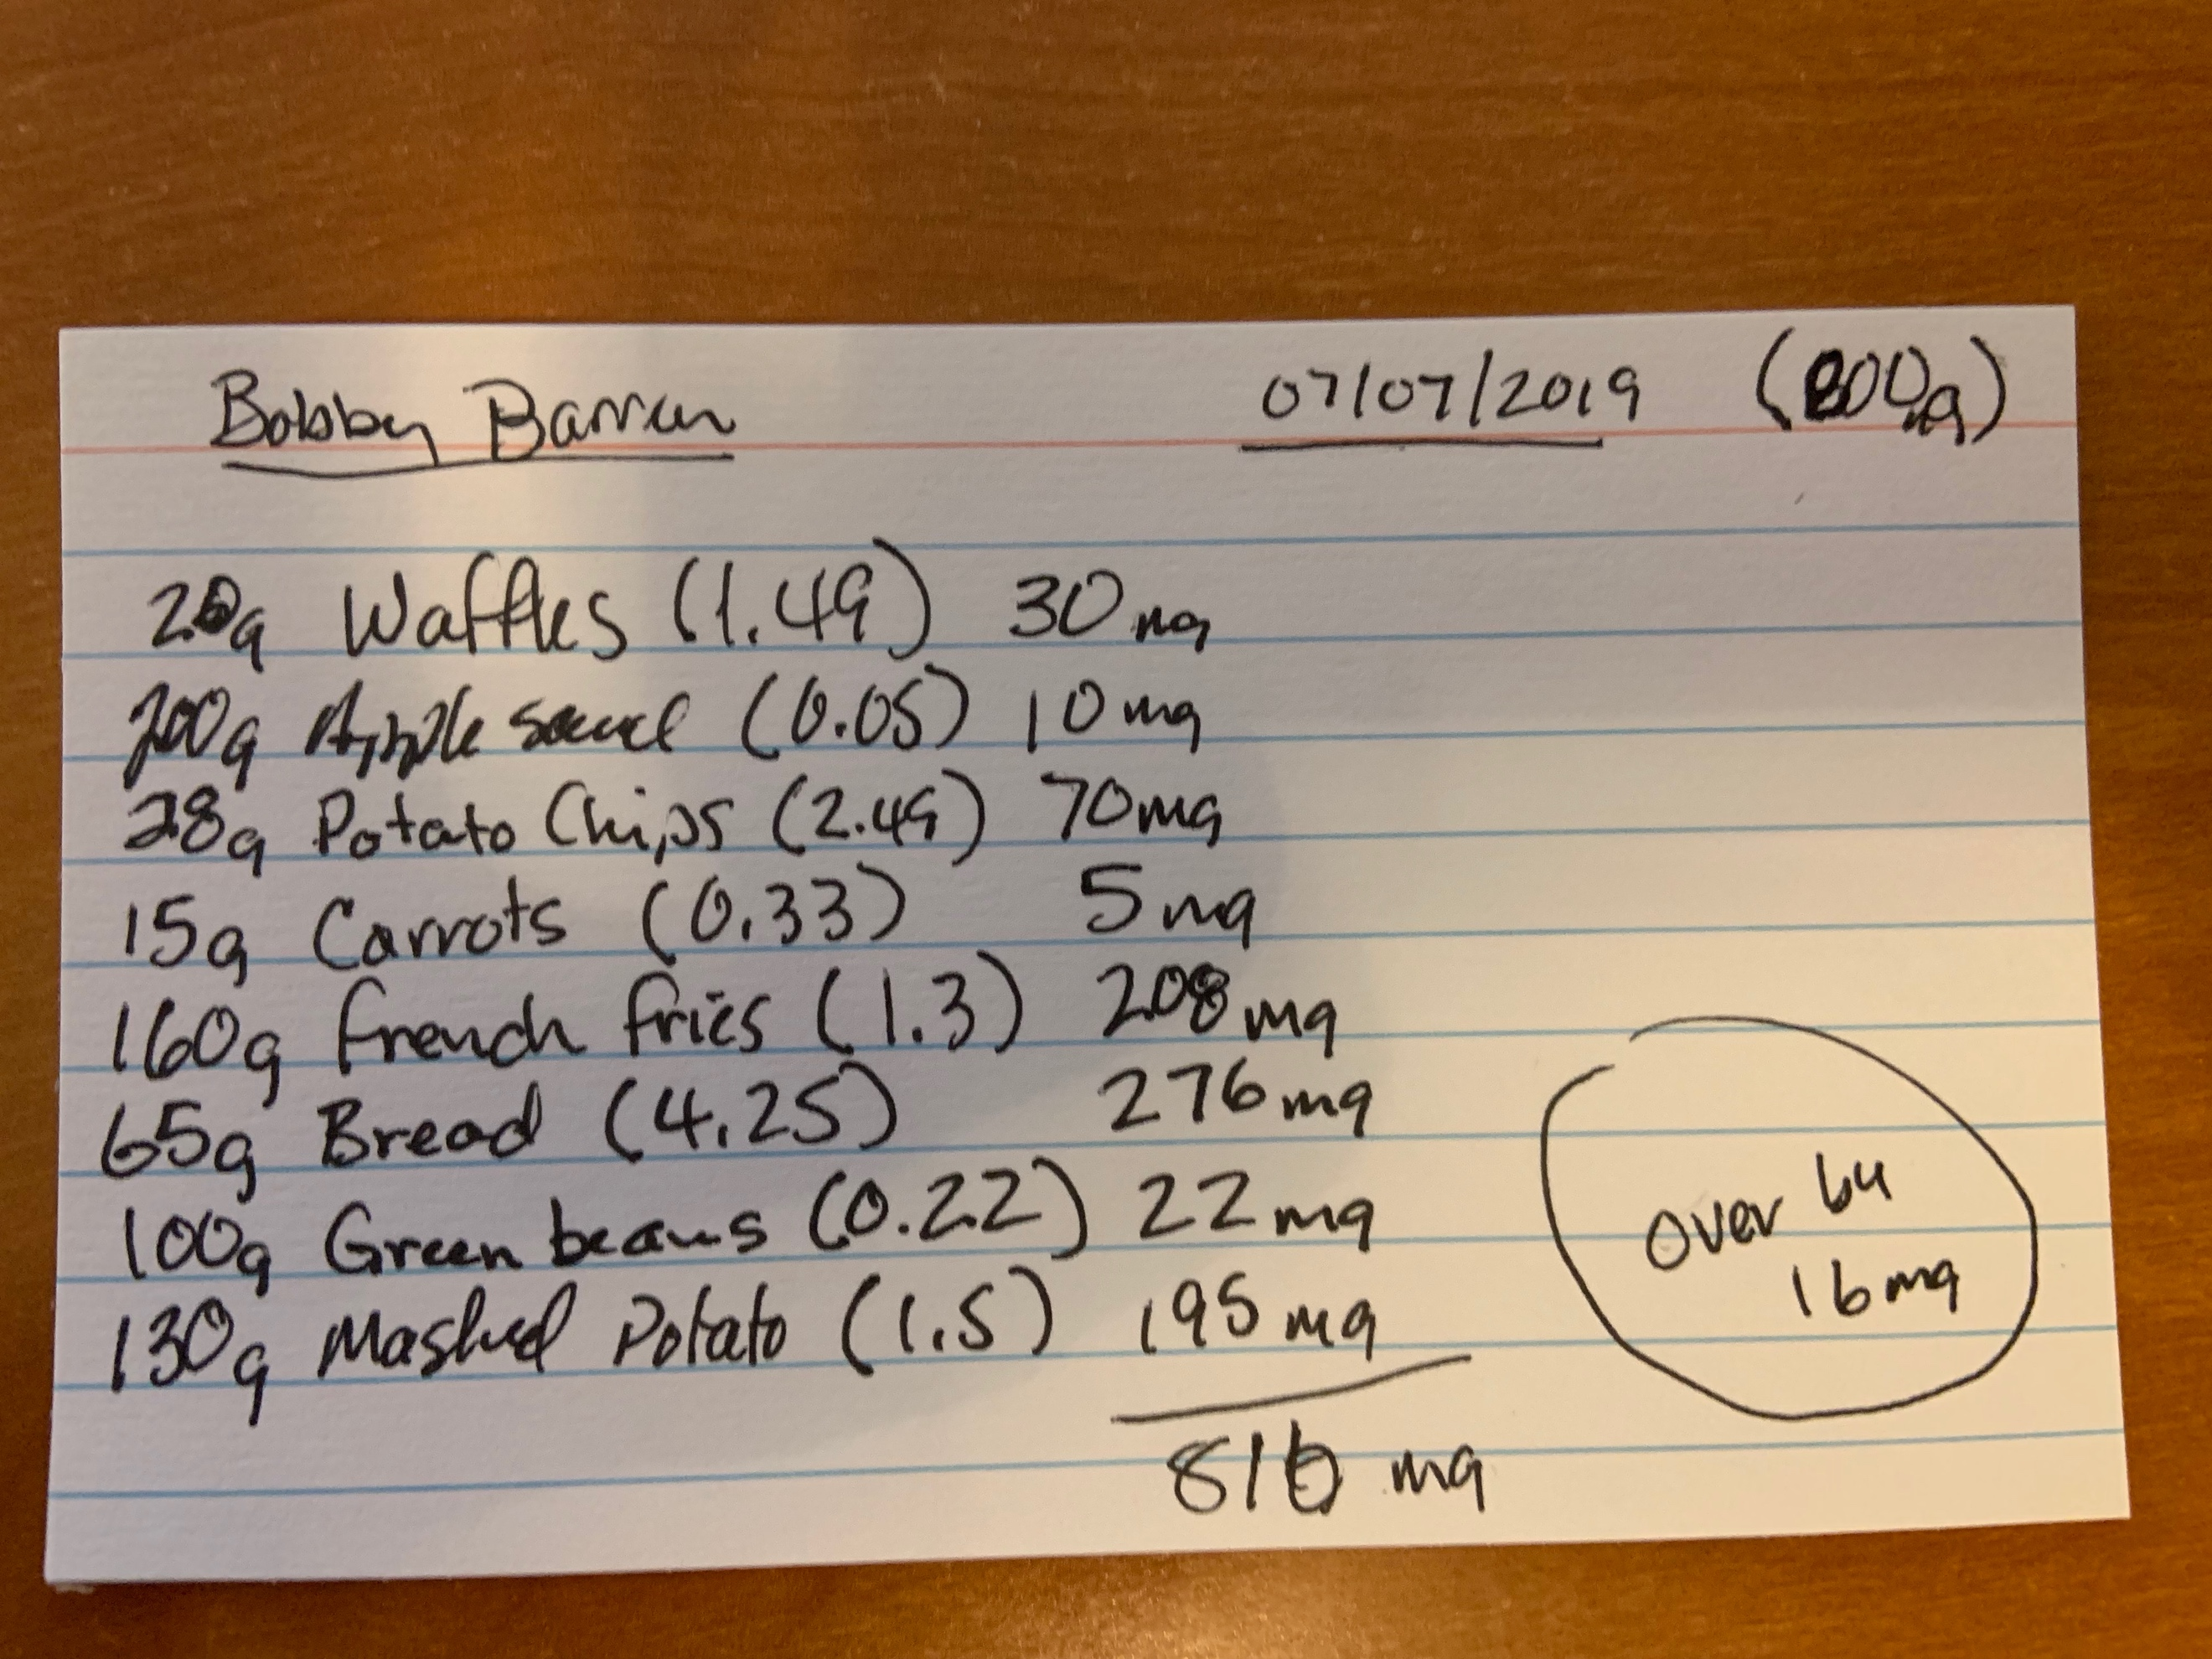 Bobby Barron 07/07/2019 (800g)
20g Waffles (1.49) 30mg
200g Apple sauce (0.05) 10mg
28g Potato Chips (2.49) 70mg
15g Carrots (0.33) 5mg
160g French fries (1.3) 208mg
65g Bread (4.25) 276mg
100g Green beans (0.22) 22mg
130g Mashed Potato (1.5) 195mg
816 mg
over by
16mg